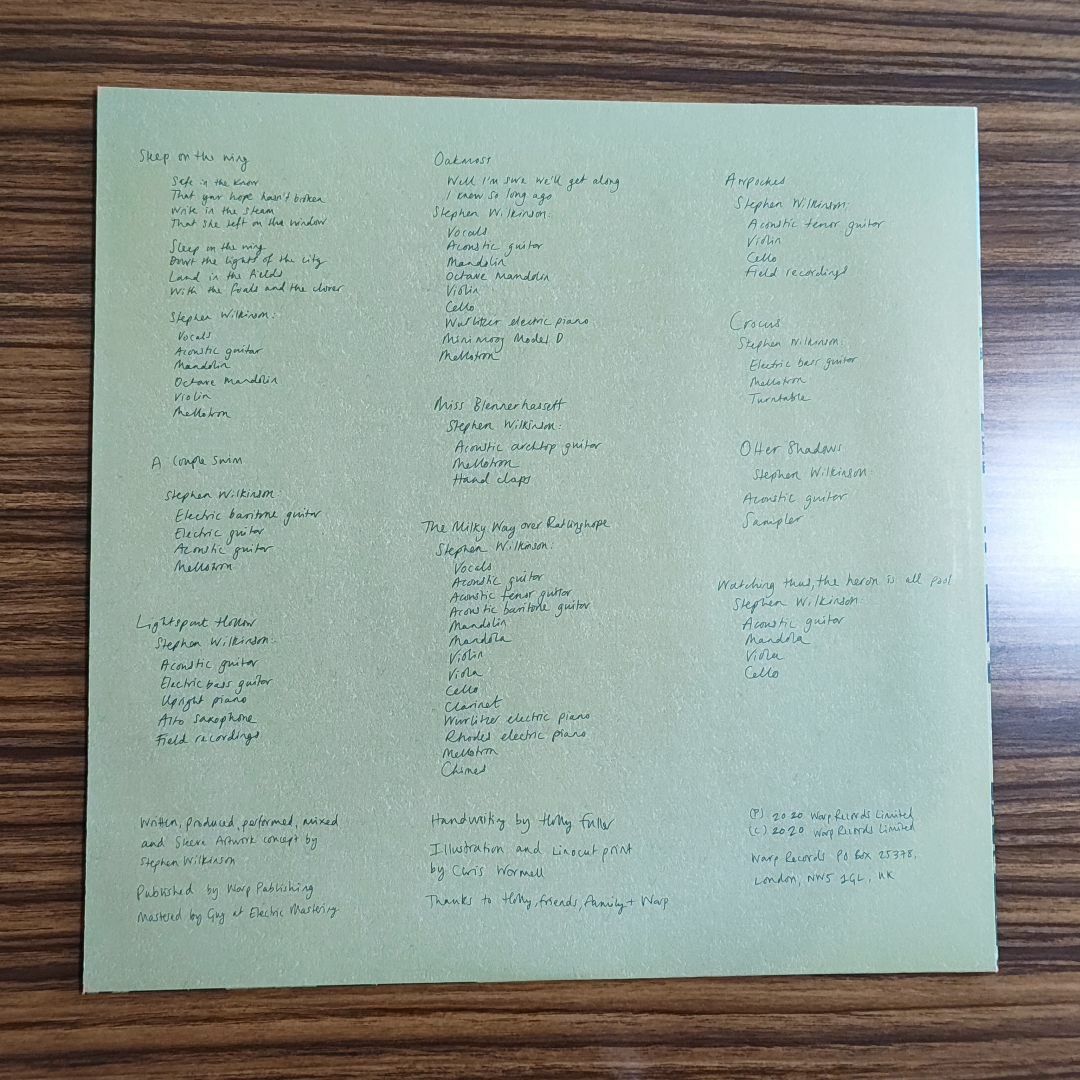 Sleep on the wing
Safe in the know
That your hope hasn't broken
Write in the steam
That she left on the window
Sleep on the wing
Dowt the lights of the city
Land in the fields
With the foals and the clover
Stephen Wilkinson:
Vocals
Acoustic guitar
Mandolin
Octave Mandolin
Violin
Mellotron
A Couple Swim
Stephen Wilkinson:
Electric baritone guitar
Electric guitar
Acoustic guitar
Mellotron
Lightspout Hollow
Stephen Wilkinson:
Acoustic guitar
Electric bass guitar
Upright piano
Alto saxophone
Field recordings
Written, produced, performed, mixed
and Sleeve Artwork concept by
Stephen Wilkinson
Published by Warp Publishing
Mastered by Guy at Electric Mastering
Oakmoss
Well I'm sure we'll get along
I knew so long ago
Stephen Wilkinson:
Vocals
Acoustic guitar
Mandolin
Octave Mandolin
Violin
Cello
Wurlitzer electric piano
Minimoog Model D
Mellotron
Miss Blennerhassett
Stephen Wilkinson:
Acoustic archtop guitar
Mellotron
Hand claps
The Milky Way over Ratlinghope
Stephen Wilkinson:
Vocals
Acoustic guitar
Acoustic tenor guitar
Acoustic baritone guitar
Mandolin
Mandola
Violin
Viola
Cello
Clarinet
Wurlitzer electric piano
Rhodes electric piano
Mellotron
Chimes
Handwriting by Holly Fuller
Illustration and Linocut print
by Chris Wormell
Thanks to Holly, friends, family + Warp
Awpockes
Stephen Wilkinson:
Acoustic tenor guitar
Violin
Cello
Field recordings
Crocus
Stephen Wilkinson:
Electric bass guitar
Mellotron
Turntable
Otter Shadows
Stephen Wilkinson:
Acoustic guitar
Sampler
Watching thus, the heron is all pool
Stephen Wilkinson:
Acoustic guitar
Mandola
Viola
Cello
(P) 2020 Warp Records Limited
(C) 2020 Warp Records Limited
Warp Records PO Box 25378,
London, NW5 1GL, UK